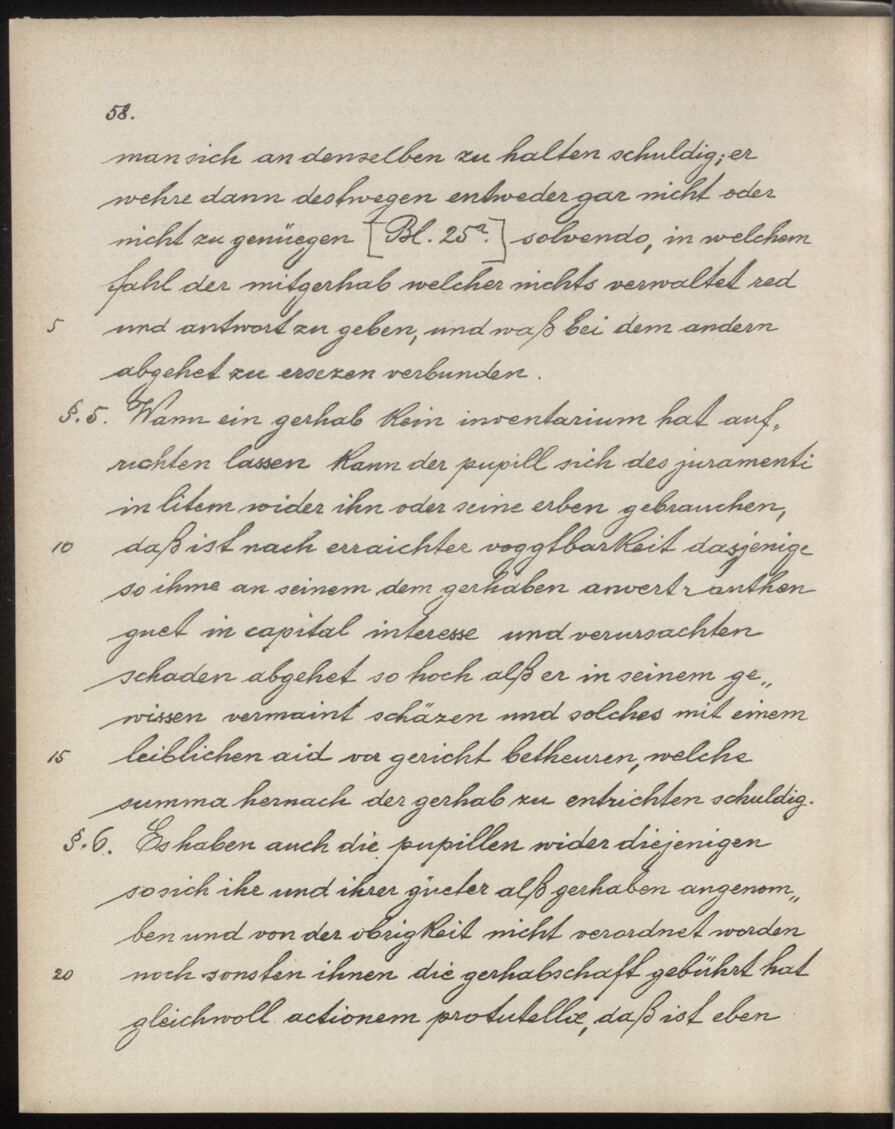 58.
man sich an denselben zu halten schuldig; er
wehre dann destwegen entweder gar nicht oder
nicht zu genüegen [Bl. 25a.] solvendo, in welchem
fahl der mitgerhab welcher nichts verwaltet red
5 und antwort zu geben, und waß bei dem andern
abgehet zu ersezen verbunden.
§. 5. Wann ein gerhab kein inventarium hat auf„
richten lassen kann der pupill sich des juramenti
in litem wider ihn oder seine erben gebrauchen,
10 daß ist nach erraichter voggtbarkeit dasjenige
so ihme an seinem dem gerhaben anvertrauthen
guet in capital interesse und verursachten
schaden abgehet so hoch alß er in seinem ge„
wissen vermaint schäzen und solches mit einem
15 leiblichen aid vor gericht betheuren, welche
summa hernach der gerhab zu entrichten schuldig.
§. 6. Es haben auch die pupillen wider diejenigen
so sich ihr und ihrer güeter alß gerhaben angenom„
ben und von der obrigkeit nicht verordnet worden
20 noch sonsten ihnen die gerhabschaft gebührt hat
gleichwoll actionem protutellæ, daß ist eben